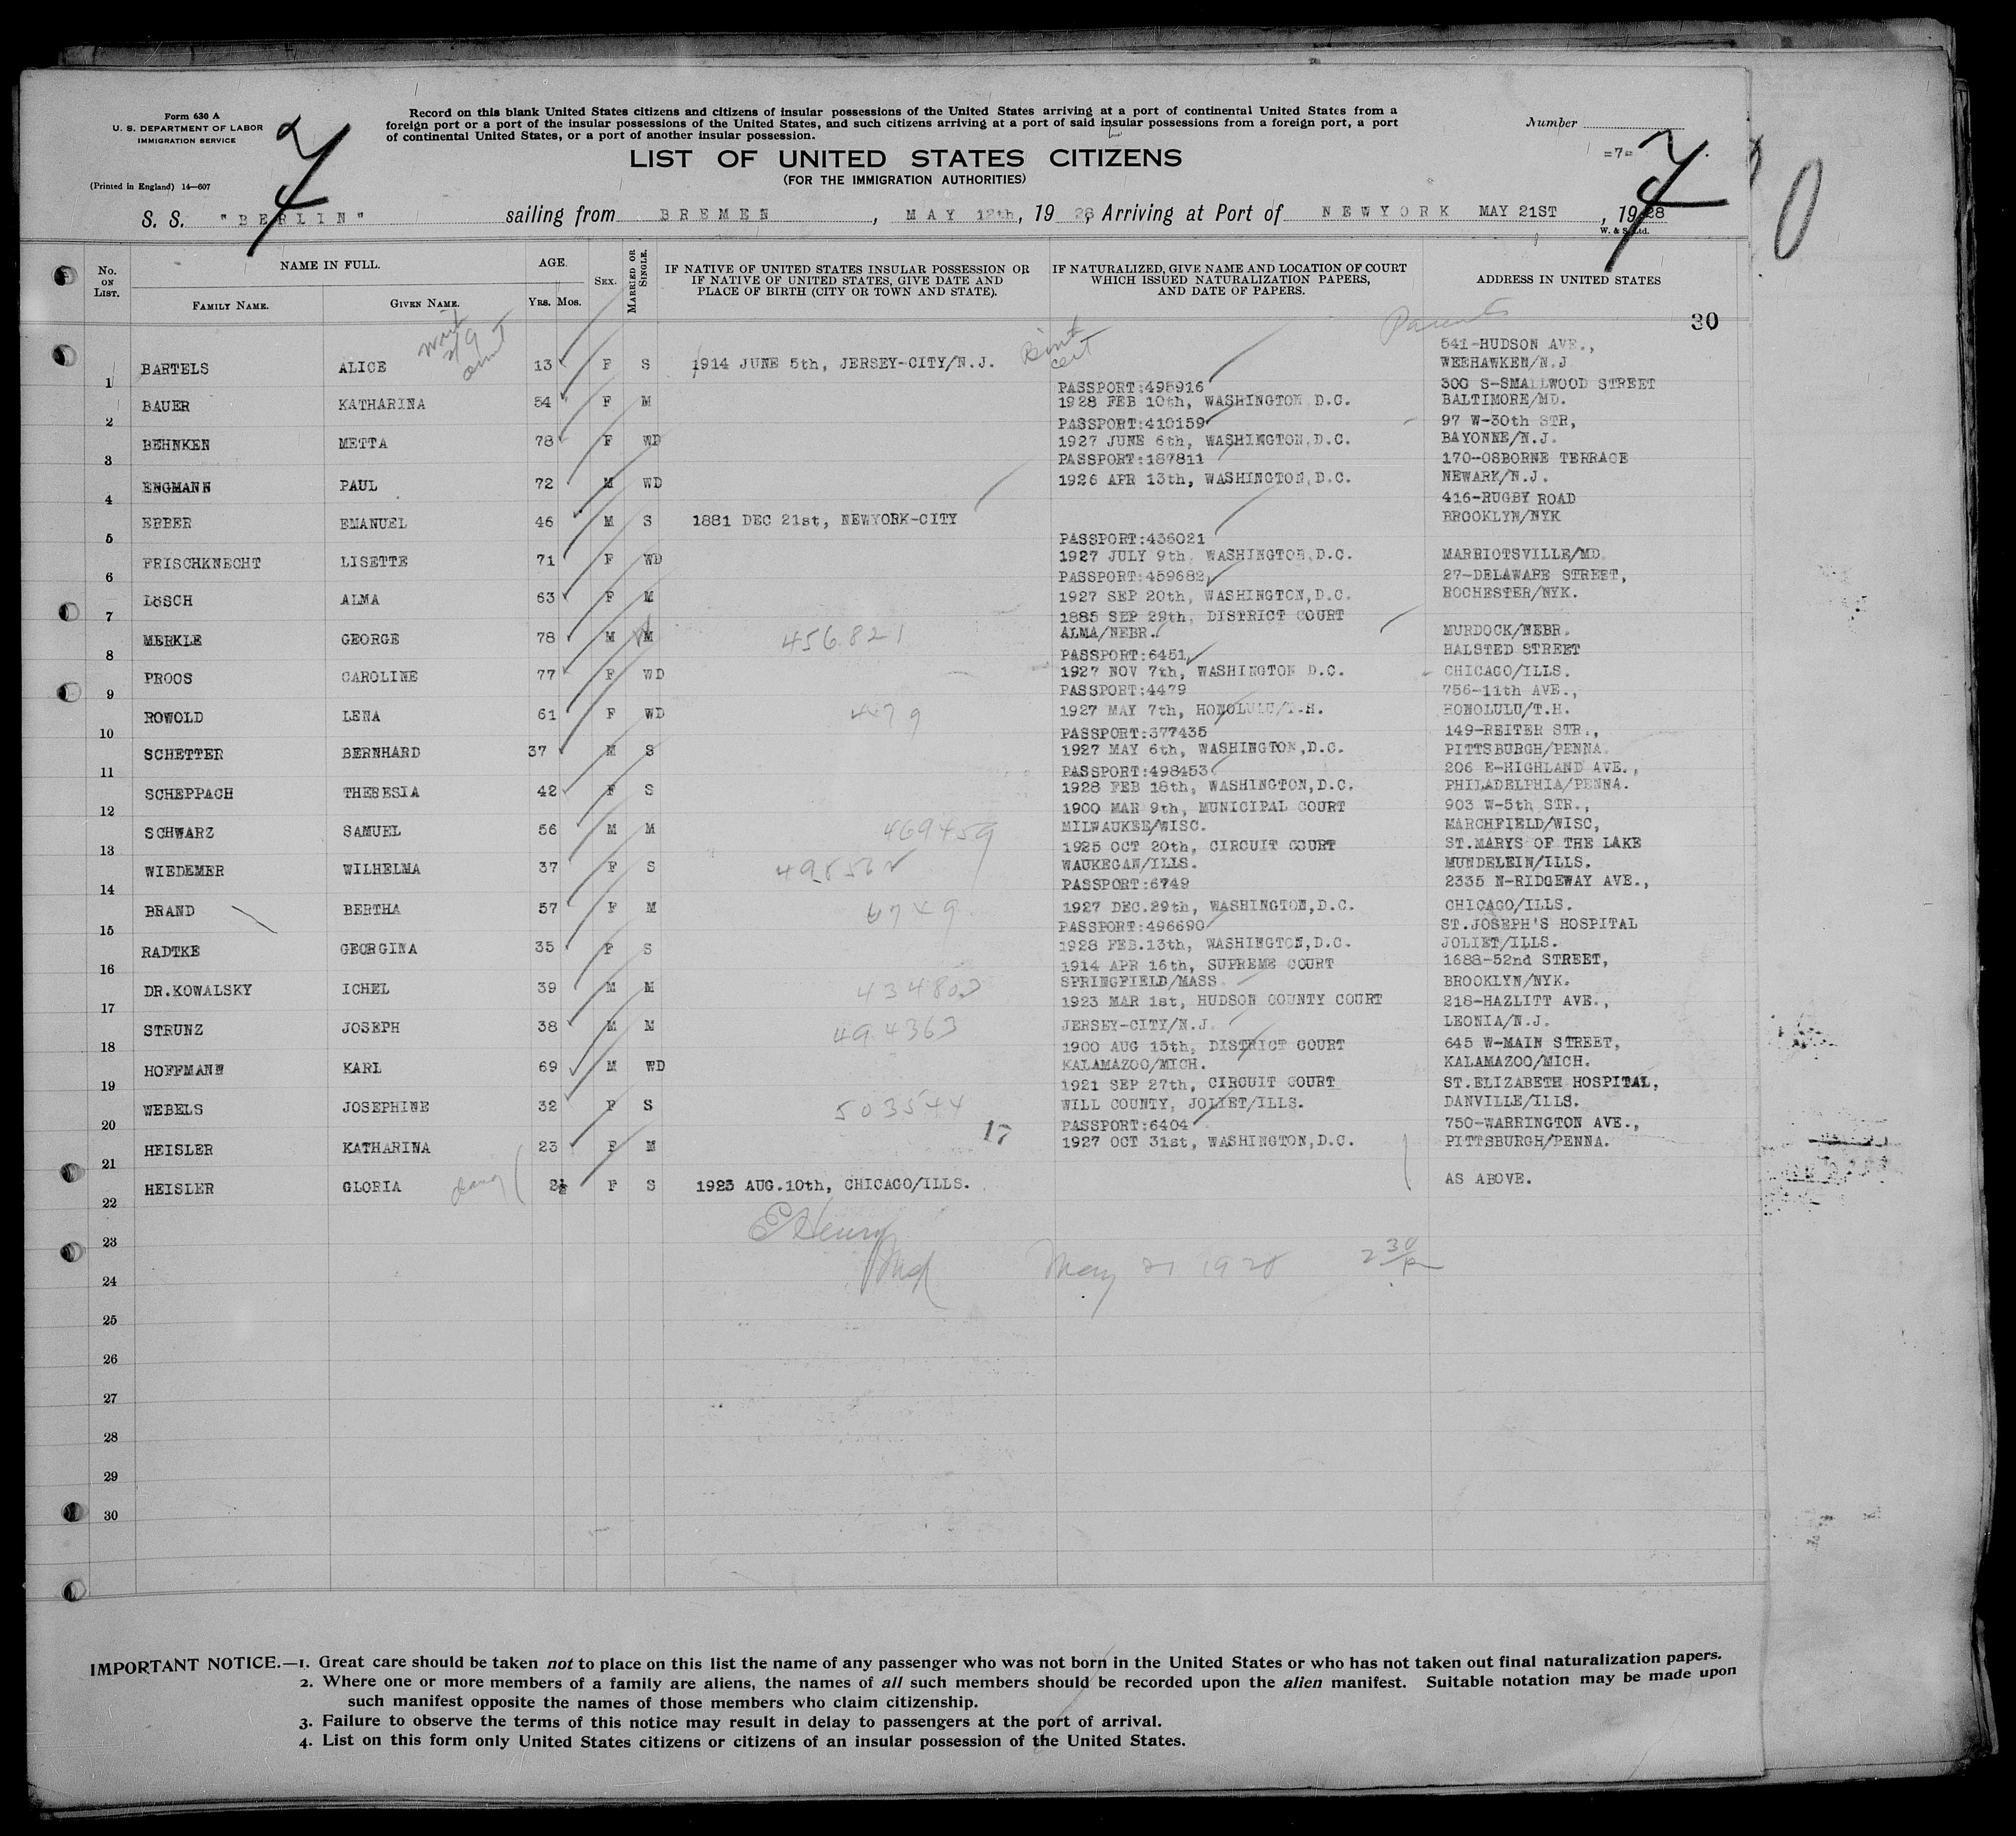 Form 630 A
U. S. DEPARTMENT OF LABOR
IMMIGRATION SERVICE
(Printed in England) 14—607
Record on this blank United States citizens and citizens of insular possessions of the United States arriving at a port of continental United States from a
foreign port or a port of the insular possessions of the United States, and such citizens arriving at a port of said insular possessions from a foreign port, a port
of continental United States, or a port of another insular possession.
Number
=7=
LIST OF UNITED STATES CITIZENS
(FOR THE IMMIGRATION AUTHORITIES)
S. S. "BERLIN" sailing from BREMEN, MAY 12th, 1928, Arriving at Port of NEWYORK MAY 21ST, 1928
W. & S. Ltd.
No. ON LIST. NAME IN FULL. AGE. SEX. MARRIED OR SINGLE. IF NATIVE OF UNITED STATES INSULAR POSSESSION OR IF NATIVE OF UNITED STATES, GIVE DATE AND PLACE OF BIRTH (CITY OR TOWN AND STATE). IF NATURALIZED, GIVE NAME AND LOCATION OF COURT WHICH ISSUED NATURALIZATION PAPERS, AND DATE OF PAPERS. ADDRESS IN UNITED STATES
FAMILY NAME. GIVEN NAME. YRS. MOS.
30
Parents
1 BARTELS ALICE 13 F S 1914 JUNE 5th, JERSEY-CITY/N.J. Birth cert 541-HUDSON AVE., WEEHAWKEN/N.J.
2 BAUER KATHARINA 54 F M PASSPORT:495916 1928 FEB 10th, WASHINGTON D.C. 300 S-SMALLWOOD STREET BALTIMORE/MD.
3 BEHNKEN METTA 78 F WD PASSPORT:410159 1927 JUNE 6th, WASHINGTON,D.C. 97 W-30th STR, BAYONNE/N.J.
4 ENGMANN PAUL 72 M WD PASSPORT:187811 1926 APR 13th, WASHINGTON,D.C. 170-OSBORNE TERRACE NEWARK/N.J.
5 EBBER EMANUEL 46 M S 1881 DEC 21st, NEWYORK-CITY 416-RUGBY ROAD BROOKLYN/NYK
6 FRISCHKNECHT LISETTE 71 F WD PASSPORT:436021 1927 JULY 9th, WASHINGTON,D.C. MARRIOTSVILLE/MD.
7 LöSCH ALMA 63 F M PASSPORT:459682 1927 SEP 20th, WASHINGTON,D.C. 27-DELAWARE STREET, ROCHESTER/NYK.
8 MERKLE GEORGE 78 M M 456821 1885 SEP 29th, DISTRICT COURT ALMA/NEBR. MURDOCK/NEBR.
9 PROOS CAROLINE 77 F WD PASSPORT:6451 1927 NOV 7th, WASHINGTON D.C. HALSTED STREET CHICAGO/ILLS.
10 ROWOLD LENA 61 F WD 4479 PASSPORT:4479 1927 MAY 7th, HONOLULU/T.H. 756-11th AVE., HONOLULU/T.H.
11 SCHETTER BERNHARD 37 M S PASSPORT:377435 1927 MAY 6th, WASHINGTON,D.C. 149-REITER STR., PITTSBURGH/PENNA.
12 SCHEPPACH THERESIA 42 F S PASSPORT:498453 1928 FEB 18th, WASHINGTON,D.C. 206 E-HIGHLAND AVE., PHILADELPHIA/PENNA.
13 SCHWARZ SAMUEL 56 M M 469459 1900 MAR 9th, MUNICIPAL COURT MILWAUKEE/WISC. 903 W-5th STR., MARCHFIELD/WISC,
14 WIEDEMER WILHELMA 37 F S 1925 OCT 20th, CIRCUIT COURT WAUKEGAN/ILLS. ST.MARYS OF THE LAKE MUNDELEIN/ILLS.
15 BRAND BERTHA 57 F M 6749 PASSPORT:6749 1927 DEC.29th, WASHINGTON,D.C. 2335 N-RIDGEWAY AVE., CHICAGO/ILLS.
16 RADTKE GEORGINA 35 F S PASSPORT:496690 1928 FEB.13th, WASHINGTON,D.C. ST.JOSEPH'S HOSPITAL JOLIET/ILLS.
17 DR.KOWALSKY ICHEL 39 M M 1914 APR 16th, SUPREME COURT SPRINGFIELD/MASS 1688-52nd STREET, BROOKLYN/NYK.
18 STRUNZ JOSEPH 38 M M 494363 1923 MAR 1st, HUDSON COUNTY COURT JERSEY-CITY/N.J. 218-HAZLITT AVE., LEONIA/N.J.
19 HOFFMANN KARL 69 M WD 1900 AUG 15th, DISTRICT COURT KALAMAZOO/MICH. 645 W-MAIN STREET, KALAMAZOO/MICH.
20 WEBELS JOSEPHINE 32 F S 503544 1921 SEP 27th, CIRCUIT COURT WILL COUNTY, JOLIET/ILLS. ST.ELIZABETH HOSPITAL, DANVILLE/ILLS.
17
21 HEISLER KATHARINA 23 F M PASSPORT:6404 1927 OCT 31st, WASHINGTON,D.C. 750-WARRINGTON AVE., PITTSBURGH/PENNA.
22 HEISLER GLORIA 2½ F S 1925 AUG.10th, CHICAGO/ILLS. AS ABOVE.
23
24 May 21 1928 2 30
25
26
27
28
29
30
IMPORTANT NOTICE.—1. Great care should be taken not to place on this list the name of any passenger who was not born in the United States or who has not taken out final naturalization papers.
2. Where one or more members of a family are aliens, the names of all such members should be recorded upon the alien manifest. Suitable notation may be made upon
such manifest opposite the names of those members who claim citizenship.
3. Failure to observe the terms of this notice may result in delay to passengers at the port of arrival.
4. List on this form only United States citizens or citizens of an insular possession of the United States.